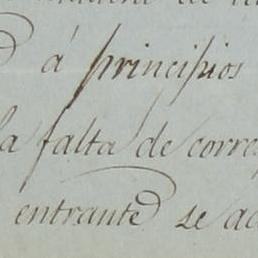 á principios
la falta de corres
entrante se ac